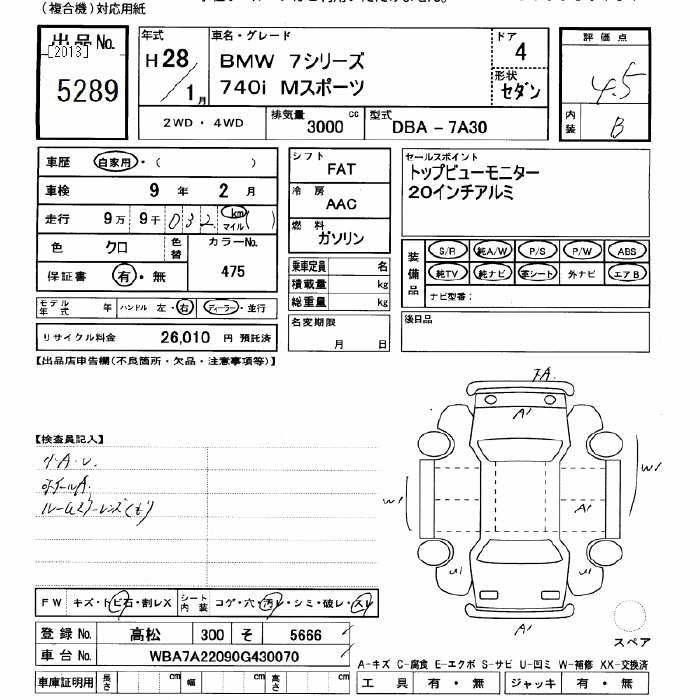 (複合機)対応用紙
出品No.
[2013]
5289
年式
H28/1月
車名・グレード
BMW 7シリーズ
740i Mスポーツ
ドア
4
形状
セダン
評価点
4.5
内装
B
2WD・4WD
排気量
3000 cc
型式
DBA - 7A30
車歴 自家用・( )
車検 9 年 2 月
走行 9万 9千 032 km マイル ( )
色 クロ 色替
カラーNo.
475
保証書 有・無
モデル年式 年 ハンドル 左・右 ディーラー・並行
リサイクル料金 26,010 円 預託済
シフト
FAT
冷房
AAC
燃料
ガソリン
乗車定員 名
積載量 kg
総重量 kg
名変期限
月 日
セールスポイント
トップビューモニター
20インチアルミ
装備品
S/R 純A/W P/S P/W ABS
純TV 純ナビ 革シート 外ナビ エアB
ナビ型番:
後日品
【出品店申告欄(不良箇所・欠品・注意事項等)】
【検査員記入】
小A.U
ホイールA.
A.
A1
W1
W1
A1
U1
U1
A1
スペア
FW キズ・トビ石・割レX シート内装 コゲ・穴・汚レ・シミ・破レ・スレ
登録No. 高松 300 そ 5666
車台No. WBA7A22090G430070
車庫証明用 長さ cm 幅 cm 高さ cm
A-キズ C-腐食 E-エクボ S-サビ U-凹ミ W-補修 XX-交換済
工具 有・無 ジャッキ 有・無